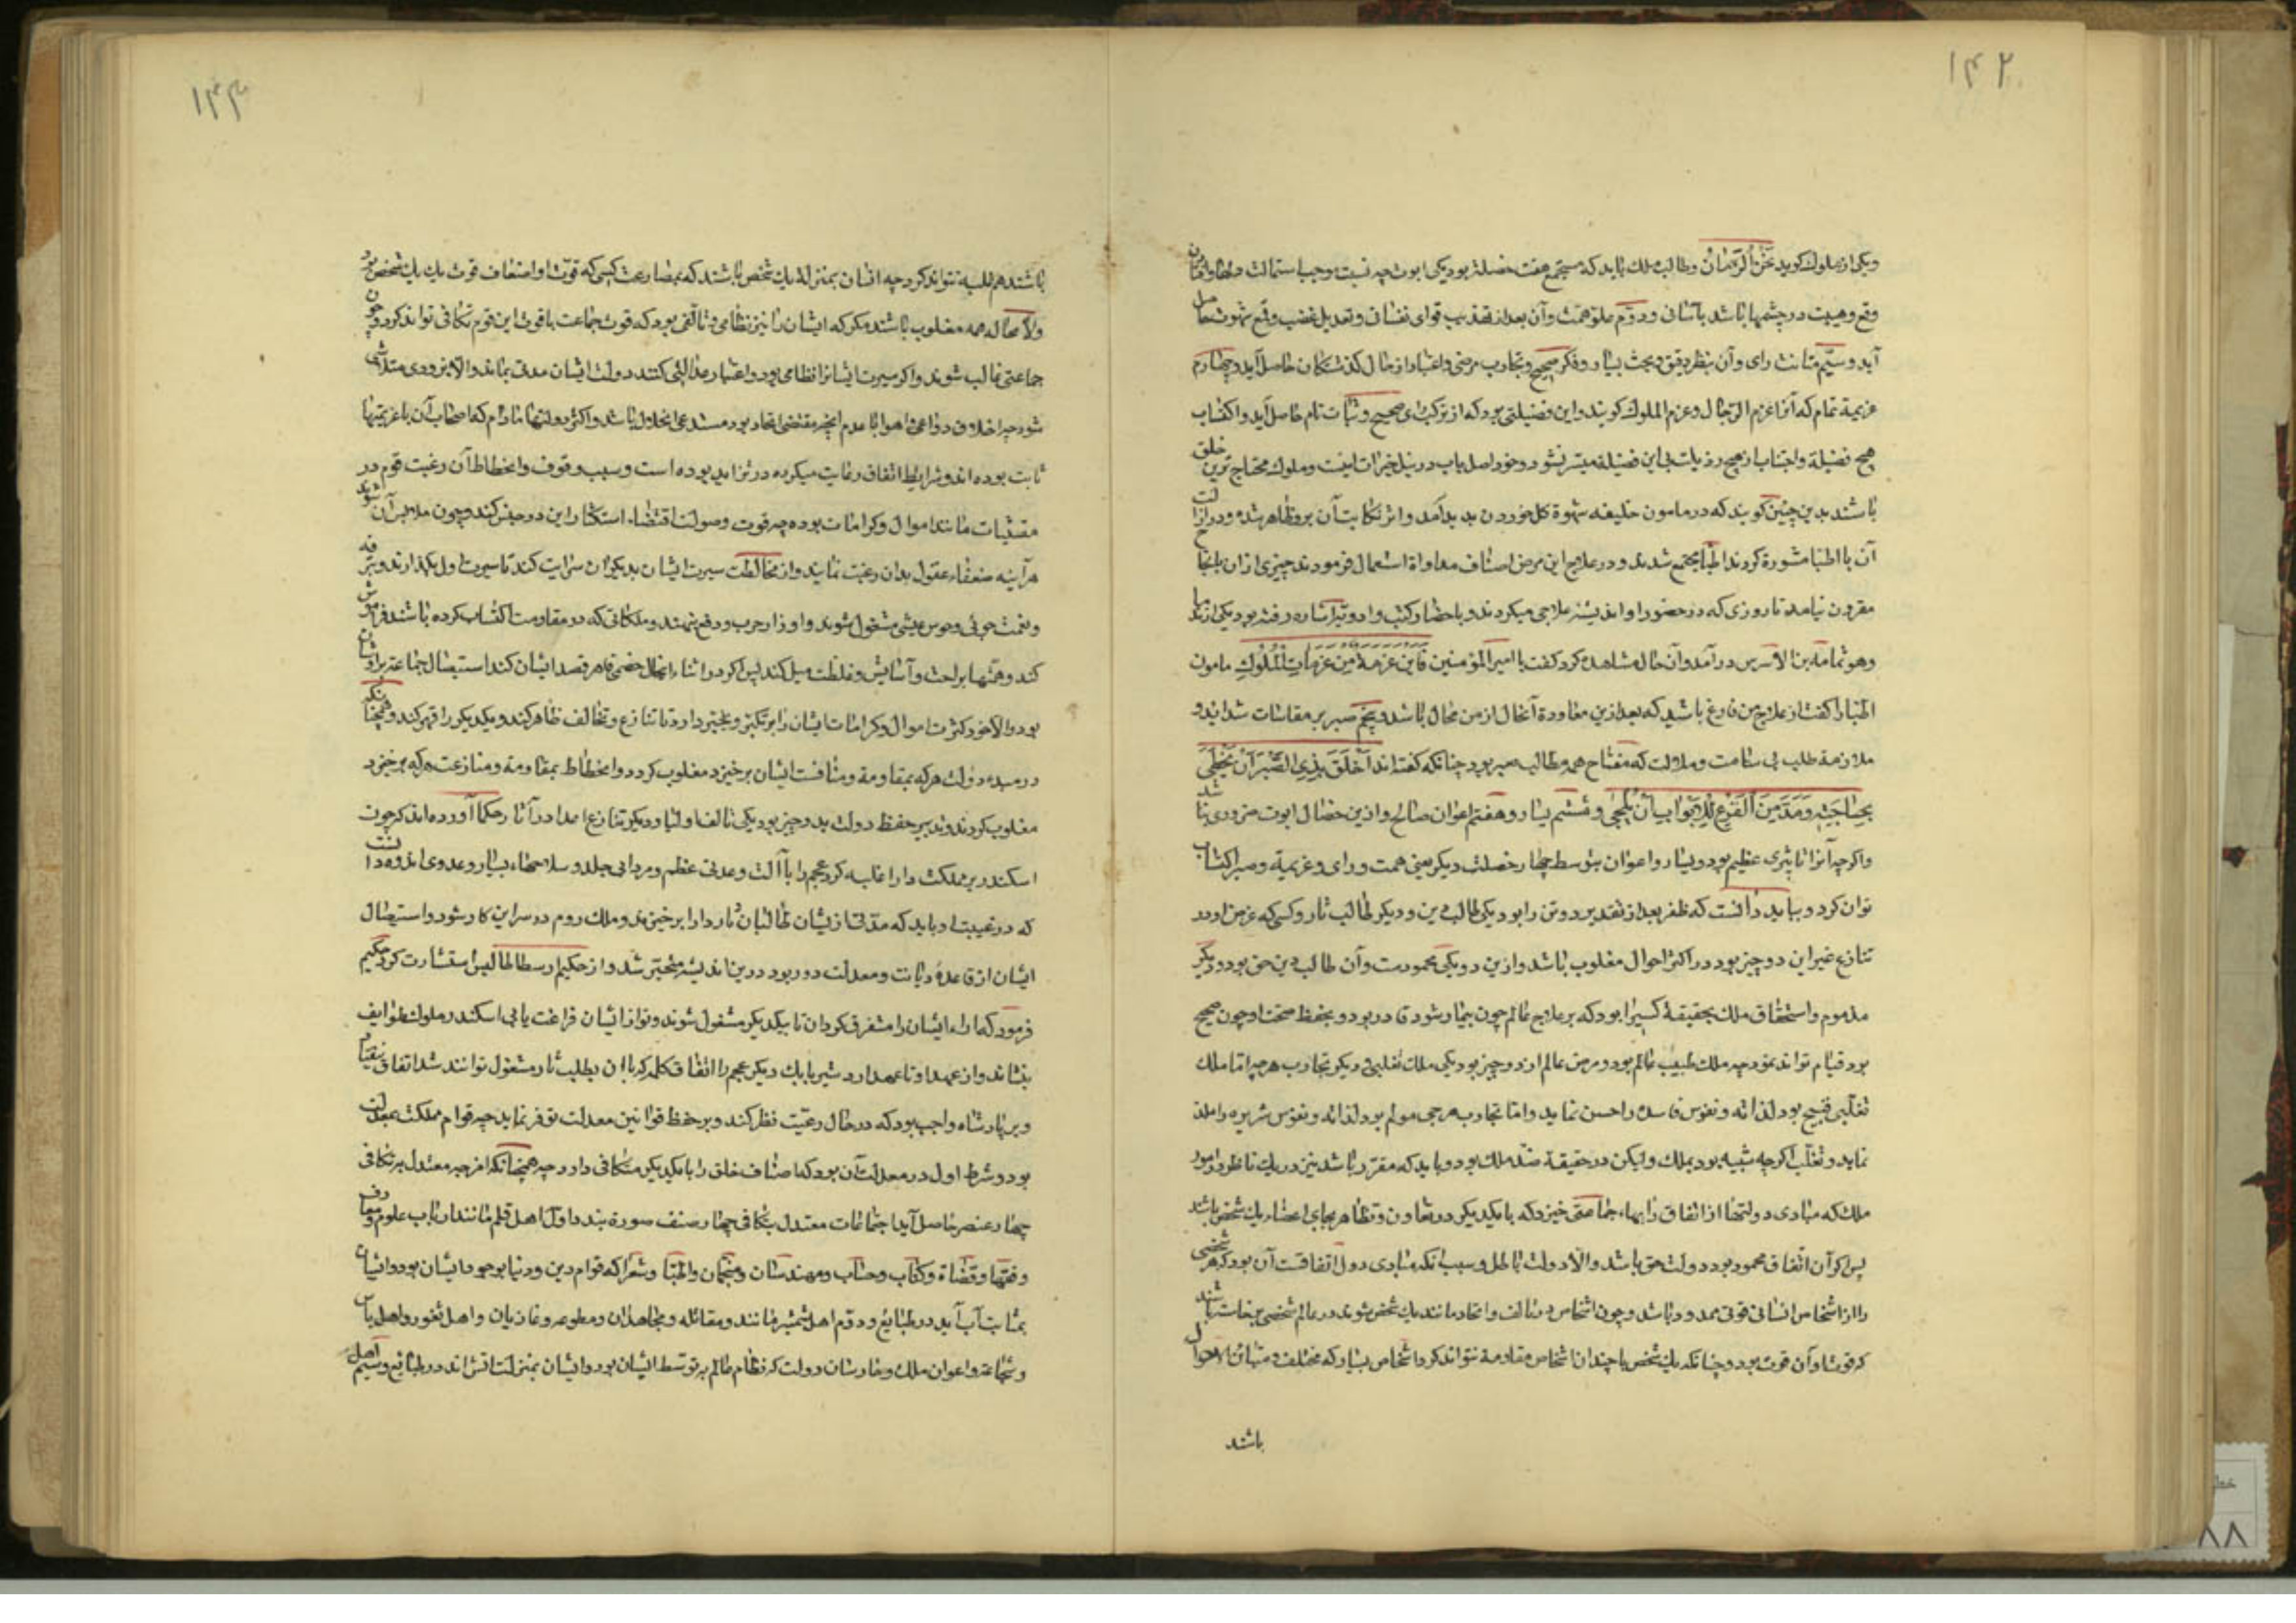 ۱۴۲
ویکی از ملوک گوید نحن الزمان وطالب ملک باید که مستجمع هفت خصلة بود یکی ابوت چه نسبت موجب استمالت دلها و
وقع وهیبت در چشمها باشد بآسانی ودوّم علوّ همّت وآن بعد از تهذیب قوای نفسانی وتعدیل غضب وقمع شهوت حاصل
آید وسیّم متانت رای وآن بنظر دقیق وبحث بسیار وفکر صحیح وتجارب مرضی واعتبار از حال گذشتکان حاصل آید وچهارم
عزیمة تمام که آنرا عزم الرّجال وعزم الملوک گویند واین فضیلتی بود که از ترکب رای صحیح وثبات تام حاصل آید واکتساب
هیچ فضیلة واجتناب از هیچ رذیلت بی این فضیلة میسّر نشود وخود اصل باب در نیل خیرات اینست وملوک محتاج ترین خلق
باشند بدین چنین گویند که در مامون خلیفه شهوة گل خوردن بدید آمد واثر نکایت آن برو ظاهر شد ودر ازالت
آن با اطبا مشورة کرد اطبّا مجتمع شدند ودر علاج این مرض اصناف مداواة استعمال فرمودند چیزی از آن بانجاح
مقرون نیامد تا روزی که در حضور او اندیشهٔ علاجی میکردند وباحضار کتب وادویه اشاره رفته بود یکی از ندما
وهو ثمامة بن الاشرس در آمد وآن حال مشاهده کرد گفت یا امیر المؤمنین فاین عزمة من عزمات الملوک مامون
اطبّا را گفت از علاج من فارغ باشید که بعد ازین معاودة آنحال از من محال باشد وپنجم صبر بر مقاسات شداید و
ملازمة طلب بی سآمت وملالت که مفتاح همه مطالب صبر بود چنانکه گفته‌اند اخلق بذی الصبر ان یحظی
بحاجته ومدمن القرع للابواب ان یلجی وششم یسار وهفتم اعوان صالح وازین خصال ابوت ضروری نباشد
واگرچه آنرا تاثیری عظیم بود ویسار واعوان بتوسط چهار خصلت دیگر یعنی همت ورای وعزیمة وصبر اکتساب
توان کرد وبباید دانست که ظفر بعد از تقدیر دو تن را بود یکی طالب دین ودیگر طالب ثار وکسی که غرض او در
تنازع غیر این دو چیز بود در اکثر احوال مغلوب باشد وازین دو یکی محمودست وآن طالب دین حق بود ودیگر
مذموم واستحقاق ملک بحقیقة کسی را بود که بر علاج عالم چون بیمار شود قادر بود وبحفظ صحت او چون صحیح
بود قیام تواند نمود چه ملک طبیب عالم بود ومرض عالم از دو چیز بود یکی ملک تغلبی ودیگر تجارب هرجی اما ملک
تغلبی قبیح بود لذاته ونفوس فاسده را حسن نماید وامّا تجارب هرجی مولم بود لذاته ونفوس شریره را ملذ
نماید وتغلّب اگرچه شبیه بود بملک ولیکن در حقیقة ضدّ ملک بود وباید که مقرّر باشد نزدیک ناظر در امور
ملک که مبادی دولتها از اتفاق رایهاء جماعتی خیزد که با یکدیگر در تعاون وتظاهر بجای اعضاء یک شخص باشد
پس اگر آن اتّفاق محمود بود دولت حق باشد والّا دولت باطل وسبب آنکه مبادی دول اتفاقست آن بود که هر شخصی
را از اشخاص انسانی قوتی محدود باشد وچون اشخاص در تالف واتحاد مانند یک شخص شوند در عالم شخصی برخاسته باشند
که قوت او آن قوت بود وچنانکه یک شخص با چندان اشخاص مقاومة نتواند کرد اشخاص بسیار که مختلف ومتباین الاحوال
باشد
۱۴۳
باشند هم غلبه نتوانند کرد چه ایشان بمنزلهٔ یک یک شخص باشند که بمصارعت کسی که قوّت او اضعاف قوت یک یک شخص بود
ولا محاله همه مغلوب باشند مگر که ایشان را نیز نظامی وتالّفی بود که قوت جماعت با قوت این قوم تکافی تواند کرد وچون
جماعتی غالب شوند واگر سیرت ایشانرا نظامی بود واعتبار عدالتی کنند دولت ایشان مدتی بماند والّا بزودی متلاشی
شود چه اختلاف دواعی واهوا با عدم آنچه مقتضی اتحاد بود مستدعی انحلال باشد واکثر دولتها مادام که اصحاب آن با عزیمتها
ثابت بوده‌اند وشرایط اتفاق رعایت میکرده در تزاید بوده است وسبب وقوف وانحطاط آن رغبت قوم در
مقتنیات مانند اموال وکرامات بوده چه قوت وصولت اقتضاء استکثار این دو جنس کند وچون ملابس آن شوند
هر آینه ضعفاء عقول بدان رغبت نمایند واز مخالطت سیرت ایشان بدیگران سرایت کند تا سیرت اول بگذارند وبترفه
ونعمت جوئی وخوش عیشی مشغول شوند واوزار حرب ودفع بنهند وملکاتی که در مقاومت اکتساب کرده باشند فراموش
کند وهمتها براحت وآسایش وعطلت میل کند پس اگر در اثناء اینحال خصمی قاهر قصد ایشان کند استیصال جماعت برو آسان
بود والا خود کثرت اموال وکرامات ایشان را بر تکبّر وتجبّر دارد تا تنازع وتخالف ظاهر کند ویکدیگر را قهر کند وهمچنانکه
در مبدء دولت هر که بمقاومة ومناقشت ایشان برخیزد مغلوب گردد در انحطاط بمقاومة ومنازعت هر که برخیزد
مغلوب گردند وتدبیر حفظ دولت بدو چیز بود یکی تالف اولیا ودیگر تنازع اعدا در آثار حکما آورده‌اند که چون
اسکندر بر مملکت دارا غلبه کرد عجم را با آلت وعدتی عظیم ومردانی جلد وسلاحهاء بسیار وعددی انبوه دانست
که در غیبت او باید که مدّتی از ایشان طالبان ثار دارا برخیزند وملک روم در سر این کار شود واستیصال
ایشان از قاعدهٔ دیانت ومعدلت دور بود درین اندیشه متحیّر شد واز حکیم ارسطاطالیس استشارت کرد حکیم
فرمود که آراء ایشان را متفرق گردان تا بیکدیگر مشغول شوند وتو از ایشان فراغت یابی اسکندر ملوک طوایف
بنشاند واز عهد او تا عهد اردشیر بابک دیگر عجم را اتّفاق کلمه که با آن بطلب ثار مشغول توانند شد اتفاق نیفتاد
وبر پادشاه واجب بود که در حال رعیّت نظر کند وبر حفظ قوانین معدلت توفر نماید چه قوام مملکت بمعدلت
بود وشرط اول در معدلت آن بود که اصناف خلق را با یکدیگر متکافی دارد چه همچنانکه امزجهٔ معتدل بتکافی
چهار عنصر حاصل آید اجتماعات معتدل بتکافی چهار صنف صورة بندد اول اهل قلم مانند ارباب علوم ومعارف
وفقها وقضاة وکتّاب وحسّاب ومهندسان ومنجمان واطبّا وشعرا که قوام دین ودنیا بوجود ایشان بود وایشان
بمثابت آب آید در طبایع ودوّم اهل شمشیر مانند مقاتله ومجاهدان ومطوعه وغازیان واهل ثغور واهل باس
وشجاعة واعوان ملک وحارسان دولت که نظام عالم بتوسط ایشان بود وایشان بمنزلت آتش‌اند در طبایع وسیّم اهل